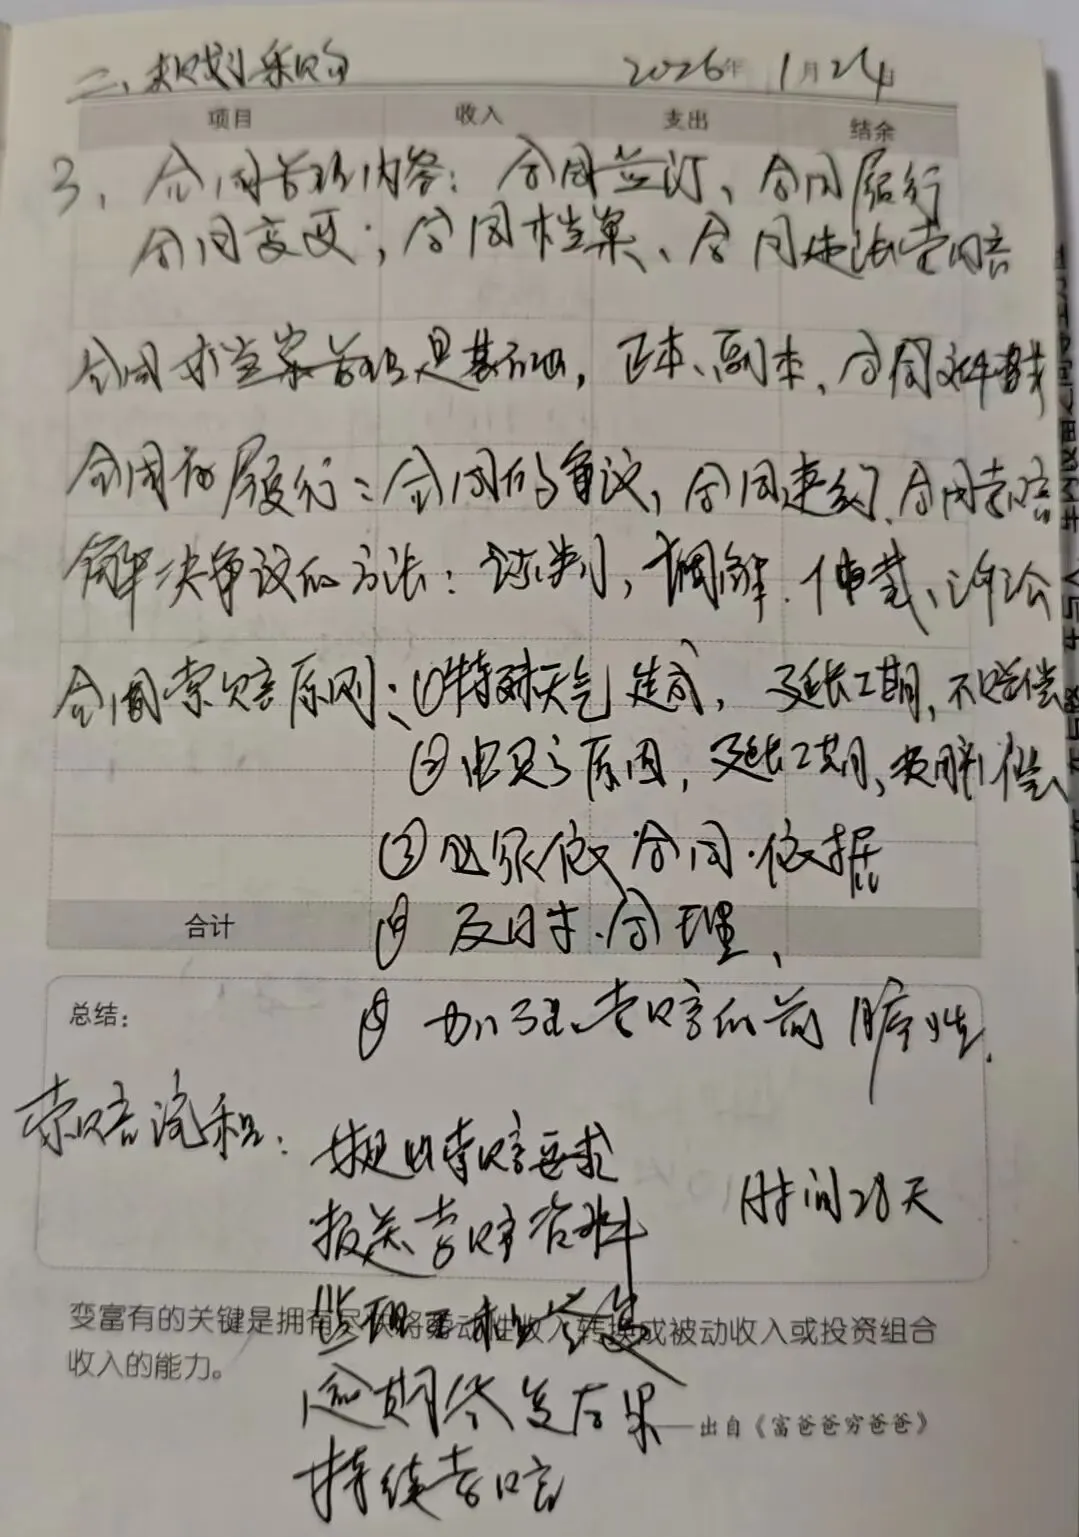 二、规划采购 2026年1月24日
项目 收入 支出 结余
3、合同管理内容：合同签订、合同履行
合同变更；合同档案、合同违法索赔
合同档案管理是基础，正本、副本、合同文件
合同的履行：合同的争议，合同违约、合同索赔
解决争议的方法：谈判，调解、仲裁、诉讼
合同索赔原则：①特殊天气造成，延长工期，不赔偿
②由买方原因，延长工期，要赔偿
③必须依合同、依据
合计 ④及时、合理、
总结： ⑤加强索赔的前瞻性。
索赔流程：提出索赔要求
报送索赔资料 时间28天
监理 答复
变富有的关键是拥有尽快将劳动性收入转换成被动收入或投资组合
收入的能力。
逾期答复后果
——出自《富爸爸穷爸爸》
持续索赔